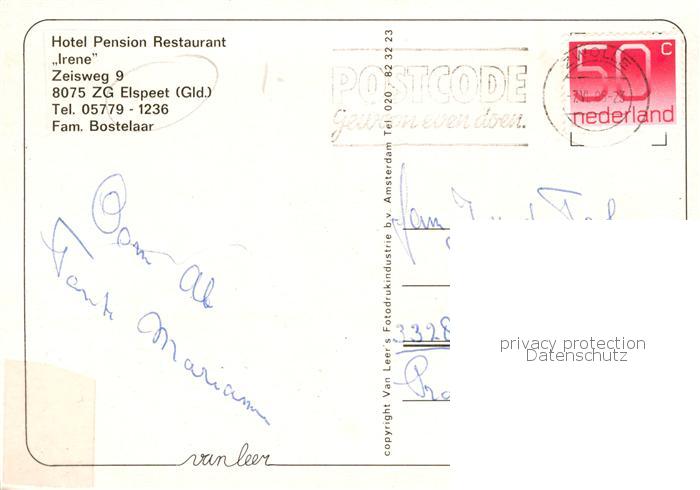 Hotel Pension Restaurant
„Irene”
Zeisweg 9
8075 ZG Elspeet (Gld.)
Tel. 05779 - 1236
Fam. Bostelaar
POSTCODE
gewoon even doen.
ZWOLLE
50 c
nederland
Oom Ab
Tante Marianne
3328
copyright Van Leer's Fotodrukindustrie b.v. Amsterdam Tel. 020 - 82 32 23
van leer
privacy protection
Datenschutz